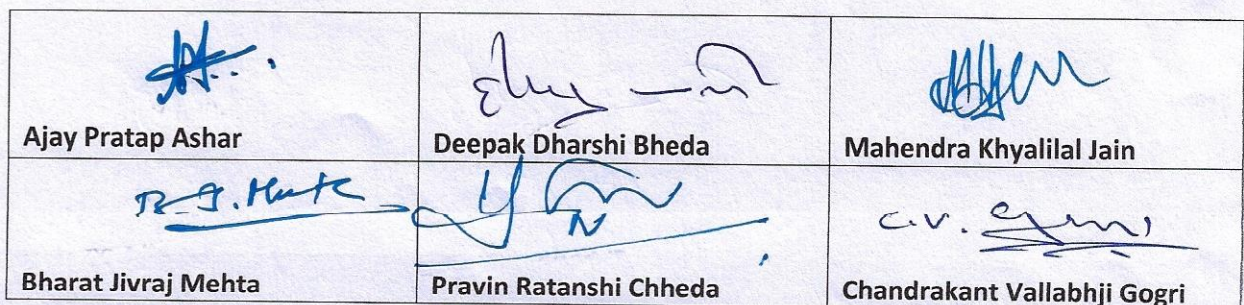 Ajay Pratap Ashar
Deepak Dharshi Bheda
Mahendra Khyalilal Jain
Bharat Jivraj Mehta
Pravin Ratanshi Chheda
C.V.
Chandrakant Vallabhji Gogri